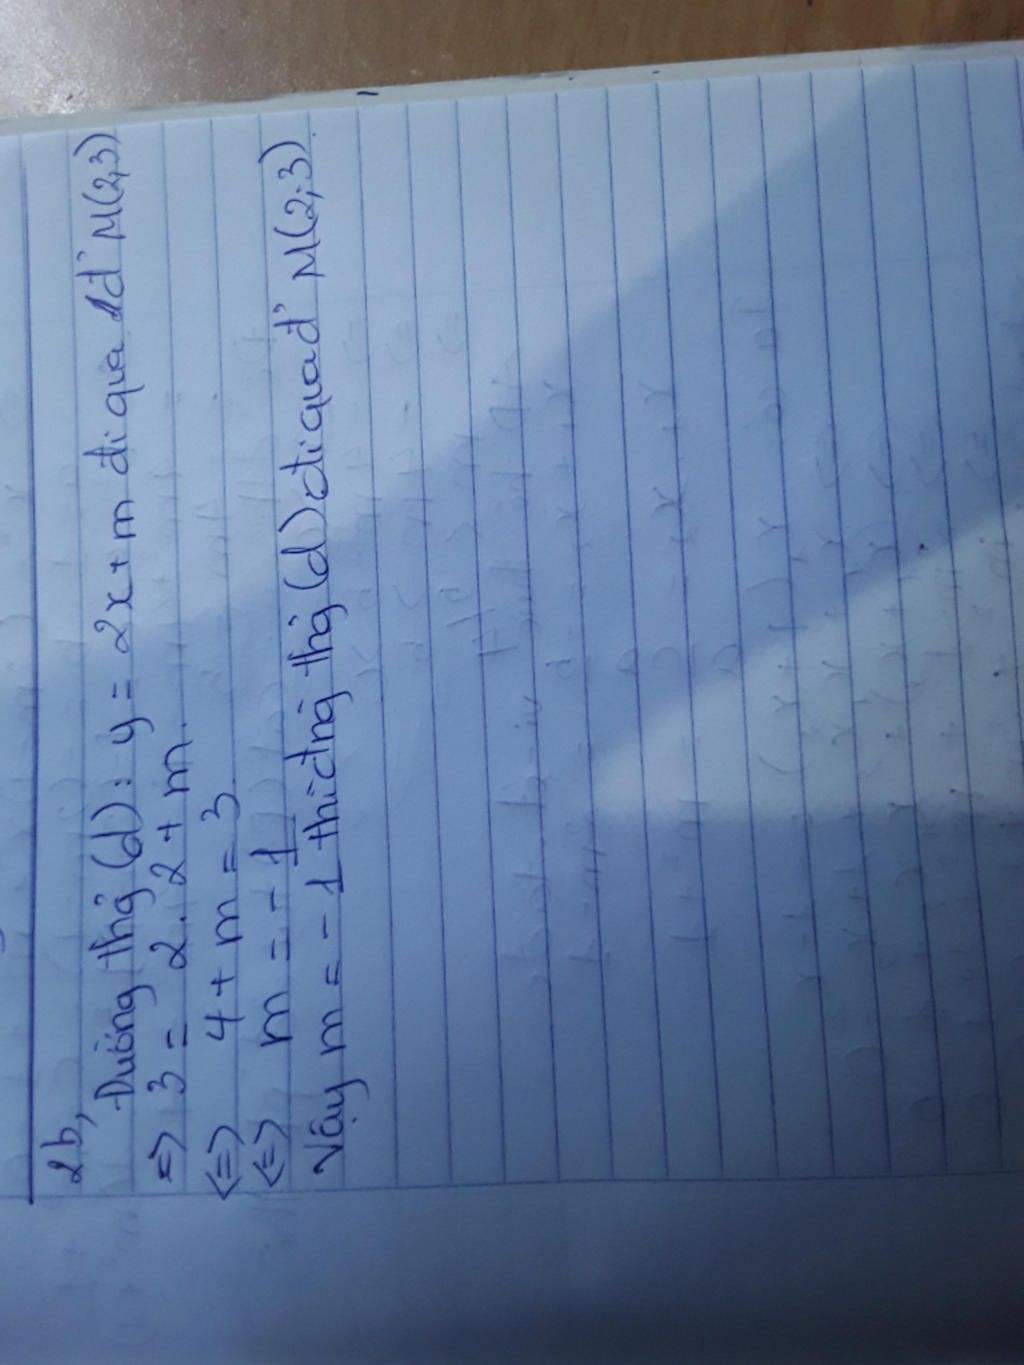 2b,
Đường thg̉ (d): y = 2x + m đi qua 1đ' M(2,3)
=> 3 = 2.2 + m.
<=> 4 + m = 3
<=> m = -1
Vậy m = -1 thì đtng̉ thg̉ (d) đi qua đ' M(2;3).